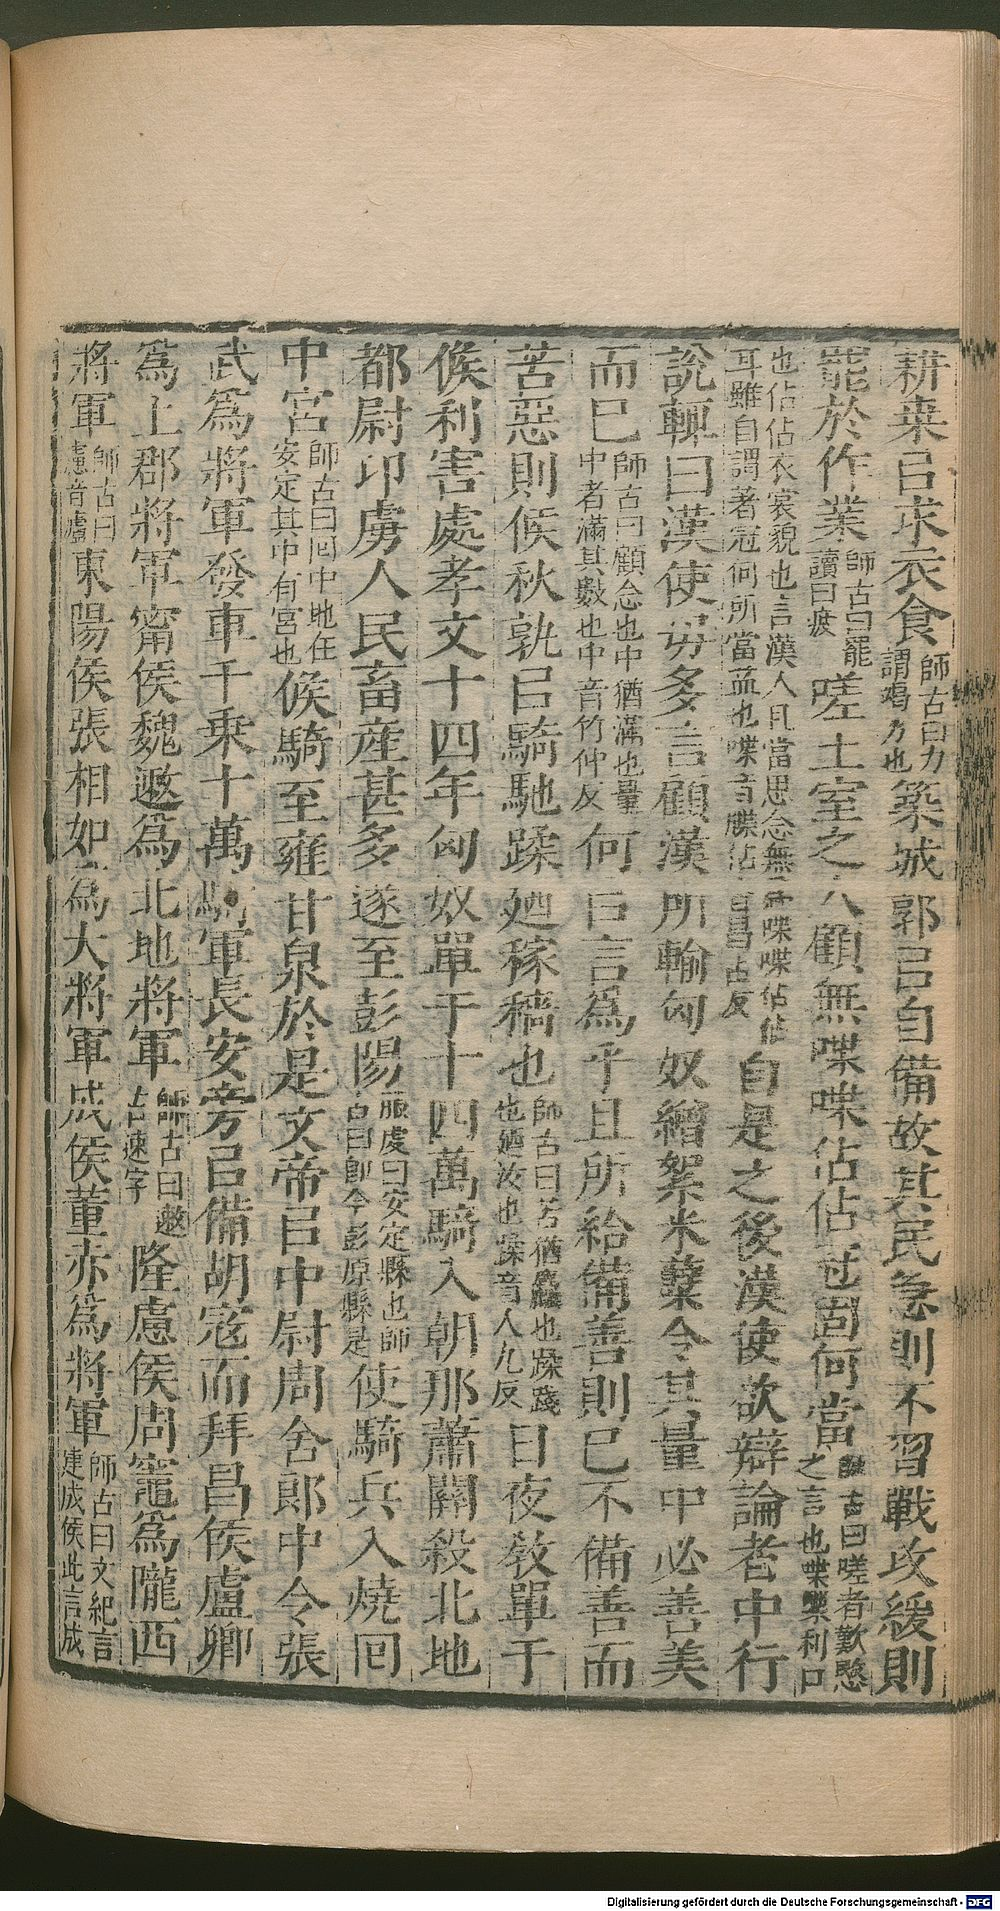 耕桒㠯求衣食師古曰力謂竭力也築城郭㠯自備故其民急則不習戰攻緩則
罷於作業師古曰罷讀曰疲嗟土室之人顧無喋喋佔佔冠固何當師古曰嗟者歎愍之言也喋喋利口
也佔佔衣裳貌也言漢人且當思念無爲喋喋佔佔耳雖自謂著冠何所當益也喋音牒佔音昌占反自是之後漢使欲辯論者中行
說輒曰漢使毋多言顧漢所輸匈奴繒絮米糱令其量中必善美
而已師古曰顧念也中猶滿也量中者滿其數也中音竹仲反何㠯言爲乎且所給備善則已不備善而
苦惡則候秋孰㠯騎馳蹂廼稼穡也師古曰苦猶麤也蹂踐也廼汝也蹂音人九反日夜敎單于
候利害處孝文十四年匈奴單于十四萬騎入朝那蕭關殺北地
都尉卬虜人民畜産甚多遂至彭陽服虔曰安定縣也師古曰卽今彭原縣是使騎兵入燒回
中宮師古曰回中地在安定其中有宮也候騎至雍甘泉於是文帝㠯中尉周舍郎中令張
武爲將軍發車千乘十萬騎軍長安旁㠯備胡寇而拜昌侯盧卿
爲上郡將軍甯侯魏遬爲北地將軍師古曰遬古速字隆慮侯周竈爲隴西
將軍師古曰慮音廬東陽侯張相如爲大將軍成侯董赤爲將軍師古曰文紀言建成侯此言成
Digitalisierung gefördert durch die Deutsche Forschungsgemeinschaft - DFG